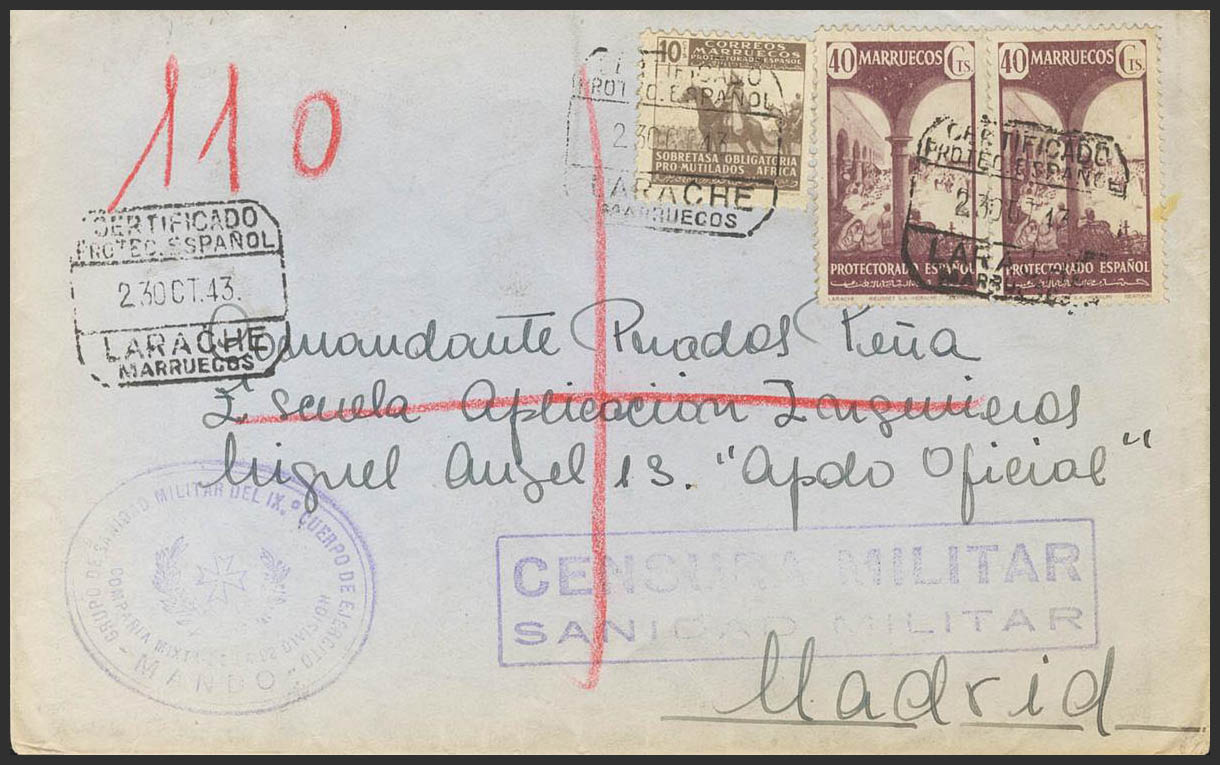 110
10 CORREOS
MARRUECOS
PROTECTORADO ESPAÑOL
SOBRETASA OBLIGATORIA
PRO MUTILADOS AFRICA
40 MARRUECOS Cts.
PROTECTORADO ESPAÑOL
LARACHE
40 MARRUECOS Cts.
PROTECTORADO ESPAÑOL
CERTIFICADO
PROTEC. ESPAÑOL
23 OCT. 43
LARACHE
MARRUECOS
CERTIFICADO
PROTEC. ESPAÑOL
23 OCT. 43
LARACHE
MARRUECOS
CERTIFICADO
PROTEC. ESPAÑOL
23 OCT. 43.
LARACHE
MARRUECOS
Comandante Prados Peña
Escuela Aplicacion Ingenieros
Miguel Angel 13. "Apdo Oficial"
Madrid
GRUPO DE SANIDAD MILITAR DEL IX.º CUERPO DE EJERCITO
COMPAÑIA MIXTA DIVISION
- MANDO -
CENSURA MILITAR
SANIDAD MILITAR